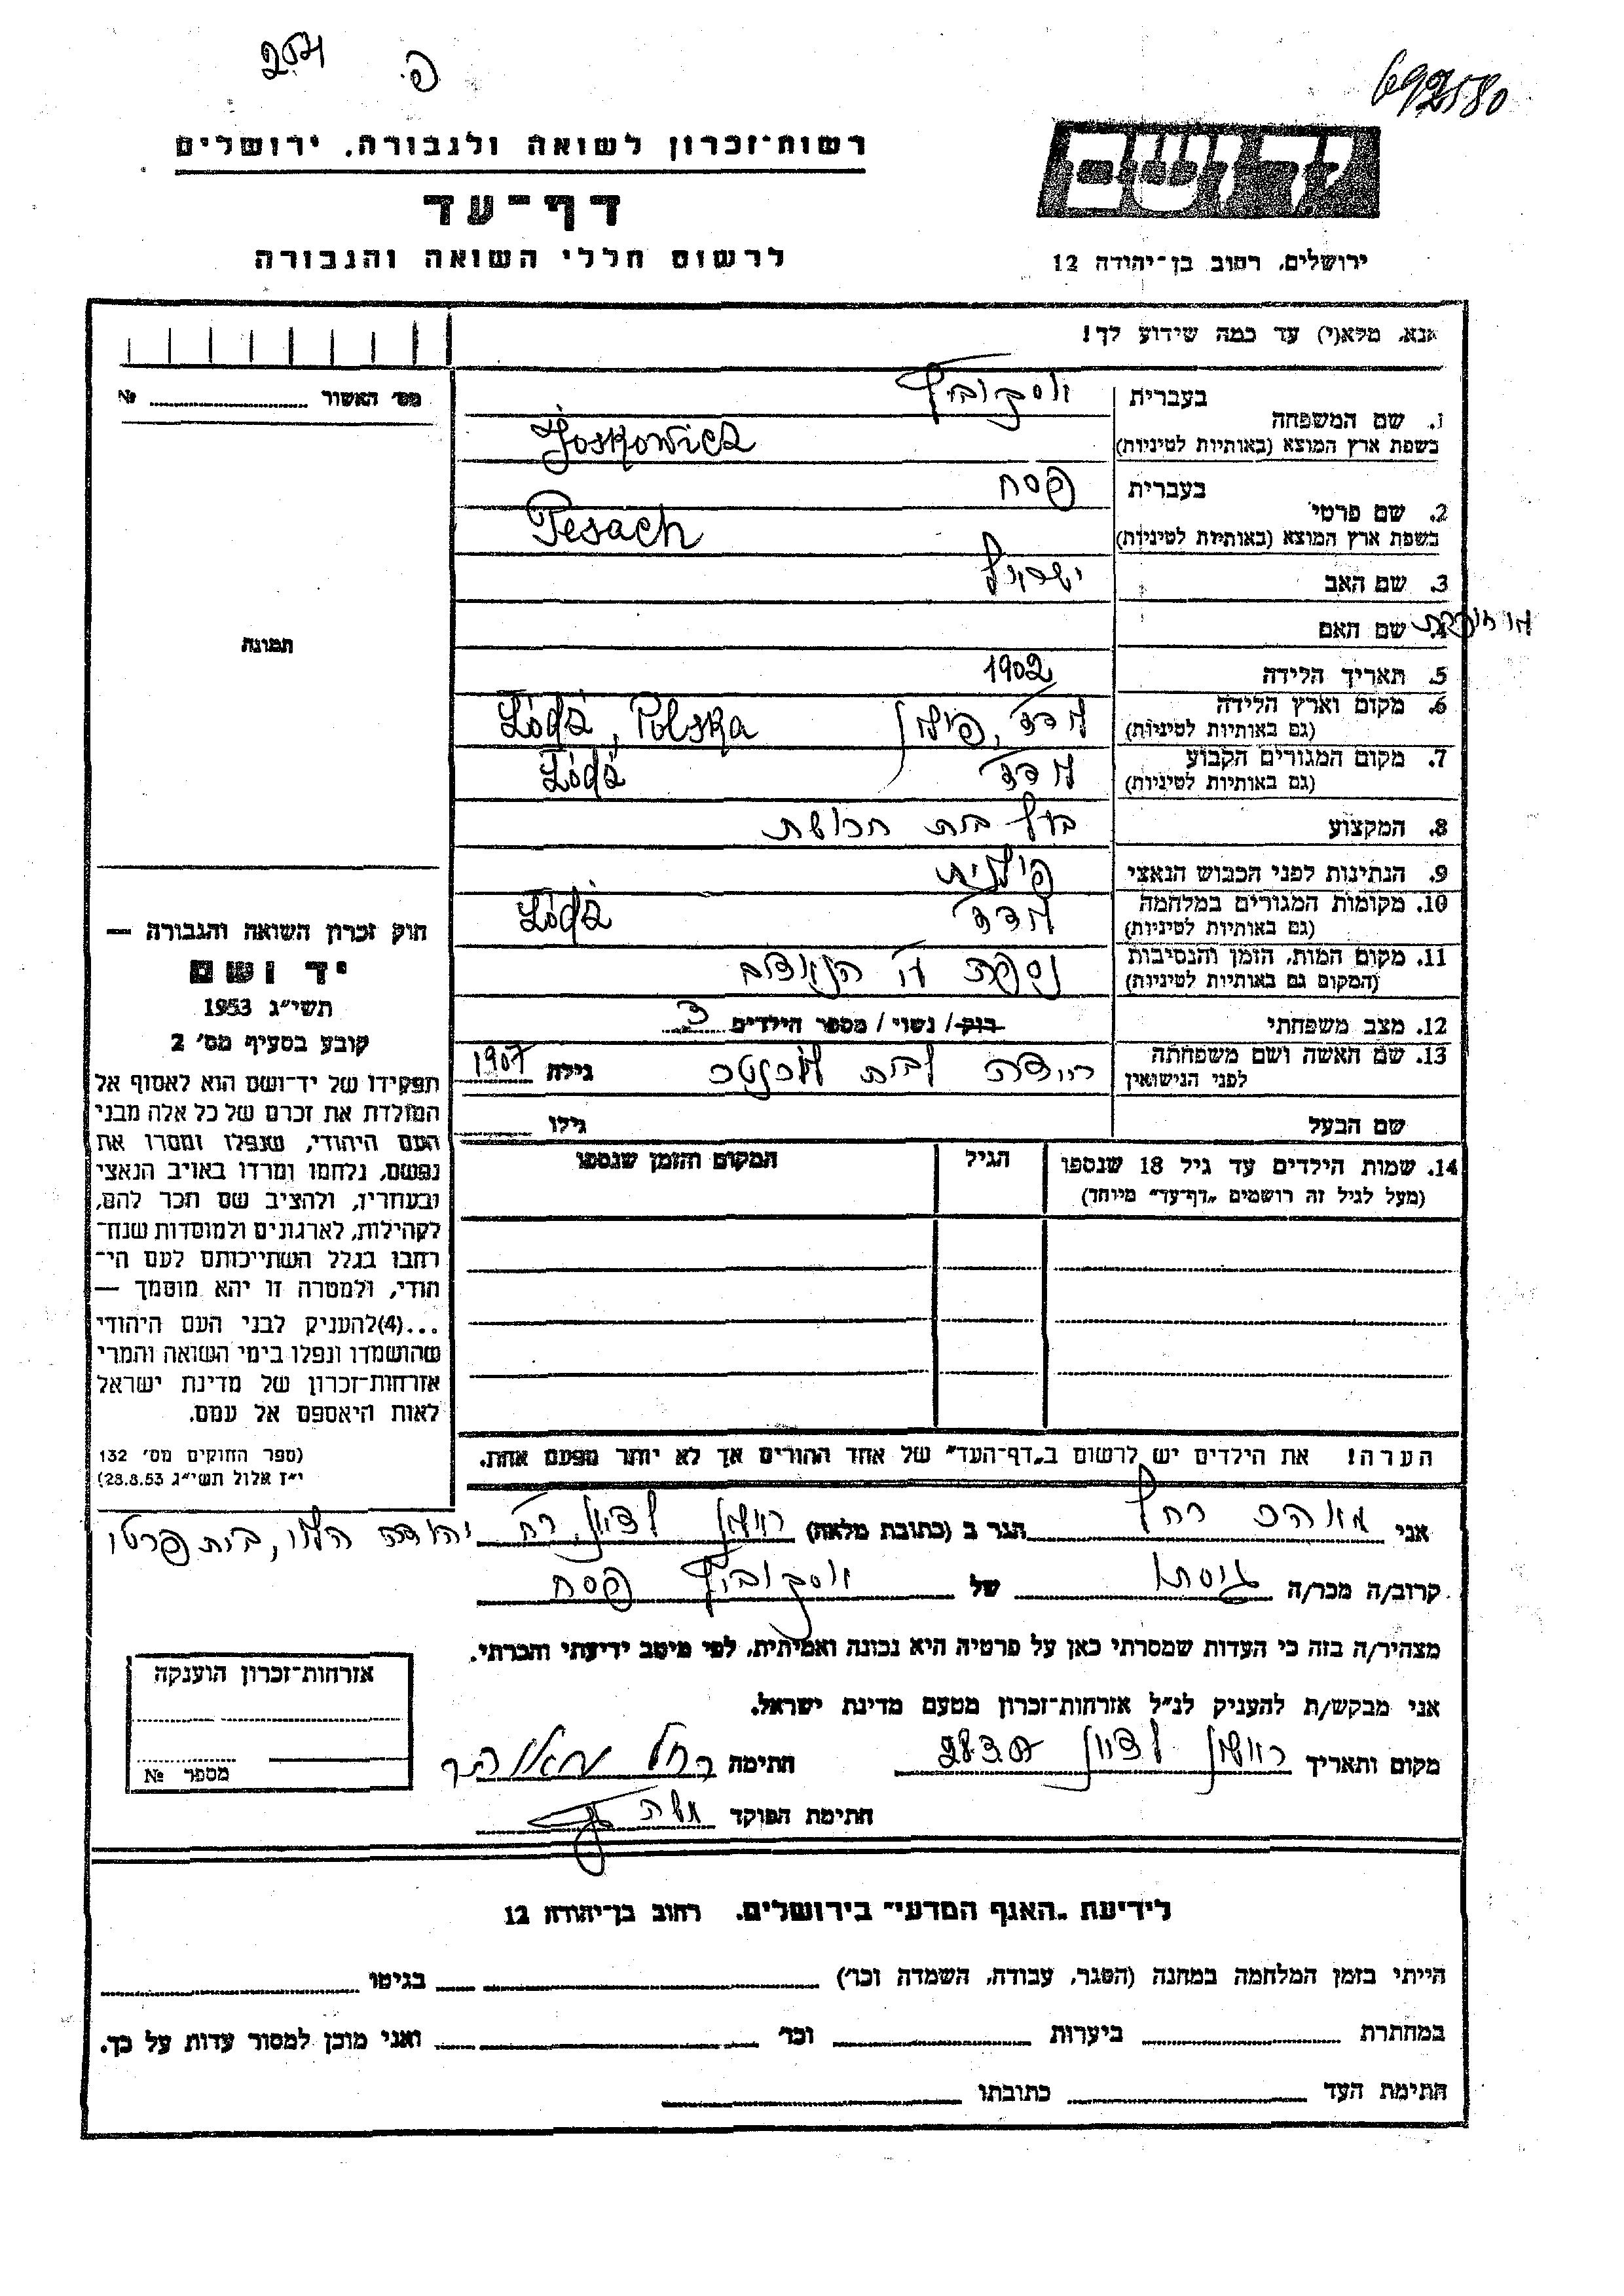 692580
רשות־זכרון לשואה ולגבורה, ירושלים
דף־עד
לרשום חללי השואה והגבורה
ירושלים, רחוב בן־יהודה 12
אנא, מלא(י) עד כמה שידוע לך!
מס׳ האשור № 
בעברית יוסקוביץ
1. שם המשפחה
בשפת ארץ המוצא (באותיות לטיניות) Joskowicz
בעברית פסח
2. שם פרטי
בשפת ארץ המוצא (באותיות לטיניות) Pesach
3. שם האב
4. שם האם
תמונה
5. תאריך הלידה 1902
6. מקום וארץ הלידה לודז׳, פולין Łódź, Polska
(גם באותיות לטיניות)
7. מקום המגורים הקבוע לודז׳ Łódź
(גם באותיות לטיניות)
8. המקצוע בעל בית חרושת
9. הנתינות לפני הכבוש הנאצי פולנית
10. מקומות המגורים במלחמה לודז׳ Łódź
(גם באותיות לטיניות)
11. מקום המות, הזמן והנסיבות
(המקום גם באותיות לטיניות)
12. מצב משפחתי רווק/ נשוי/ מספר הילדים 3
13. שם האשה ושם משפחתה
לפני הנישואין לבית גילה 1907
שם הבעל גילו
14. שמות הילדים עד גיל 18 שנספו הגיל המקום והזמן שנספו
(מעל לגיל זה רושמים „דף־עד״ מיוחד)
הערה! את הילדים יש לרשום ב„דף־העד״ של אחד ההורים אך לא יותר מפעם אחת.
חוק זכרון השואה והגבורה —
יד ושם
תשי״ג 1953
קובע בסעיף מס׳ 2
תפקידו של יד־ושם הוא לאסוף אל
המולדת את זכרם של כל אלה מבני
העם היהודי, שנפלו ומסרו את
נפשם, נלחמו ומרדו באויב הנאצי
ובעוזריו, ולהציב שם וזכר להם,
לקהילות, לארגונים ולמוסדות שנח־
רבו בגלל השתייכותם לעם הי־
הודי, ולמטרה זו יהא מוסמך —
...(4)להעניק לבני העם היהודי
שהושמדו ונפלו בימי השואה והמרי
אזרחות־זכרון של מדינת ישראל
לאות היאספם אל עמם.
(ספר החוקים מס׳ 132
י״ז אלול תשי״ג 28.8.53)
אני רחל הגר ב (כתובת מלאה) ראשון לציון, רח׳ יהודה הלוי, בית
קרוב/ה מכר/ה גיסתו של יוסקוביץ פסח
מצהיר/ה בזה כי העדות שמסרתי כאן על פרטיה היא נכונה ואמיתית, לפי מיטב ידיעתי והכרתי.
אני מבקש/ת להעניק לנ״ל אזרחות־זכרון מטעם מדינת ישראל.
מקום ותאריך ראשון לציון חתימה רחל
חתימת הפוקד משה
אזרחות־זכרון הוענקה
מספר №
לידיעת „האגף המדעי״ בירושלים, רחוב בן־יהודה 12
הייתי בזמן המלחמה במחנה (הסגר, עבודה, השמדה וכו׳) בגיטו
במחתרת ביערות וכו׳ ואני מוכן למסור עדות על כך.
חתימת העד כתובתו